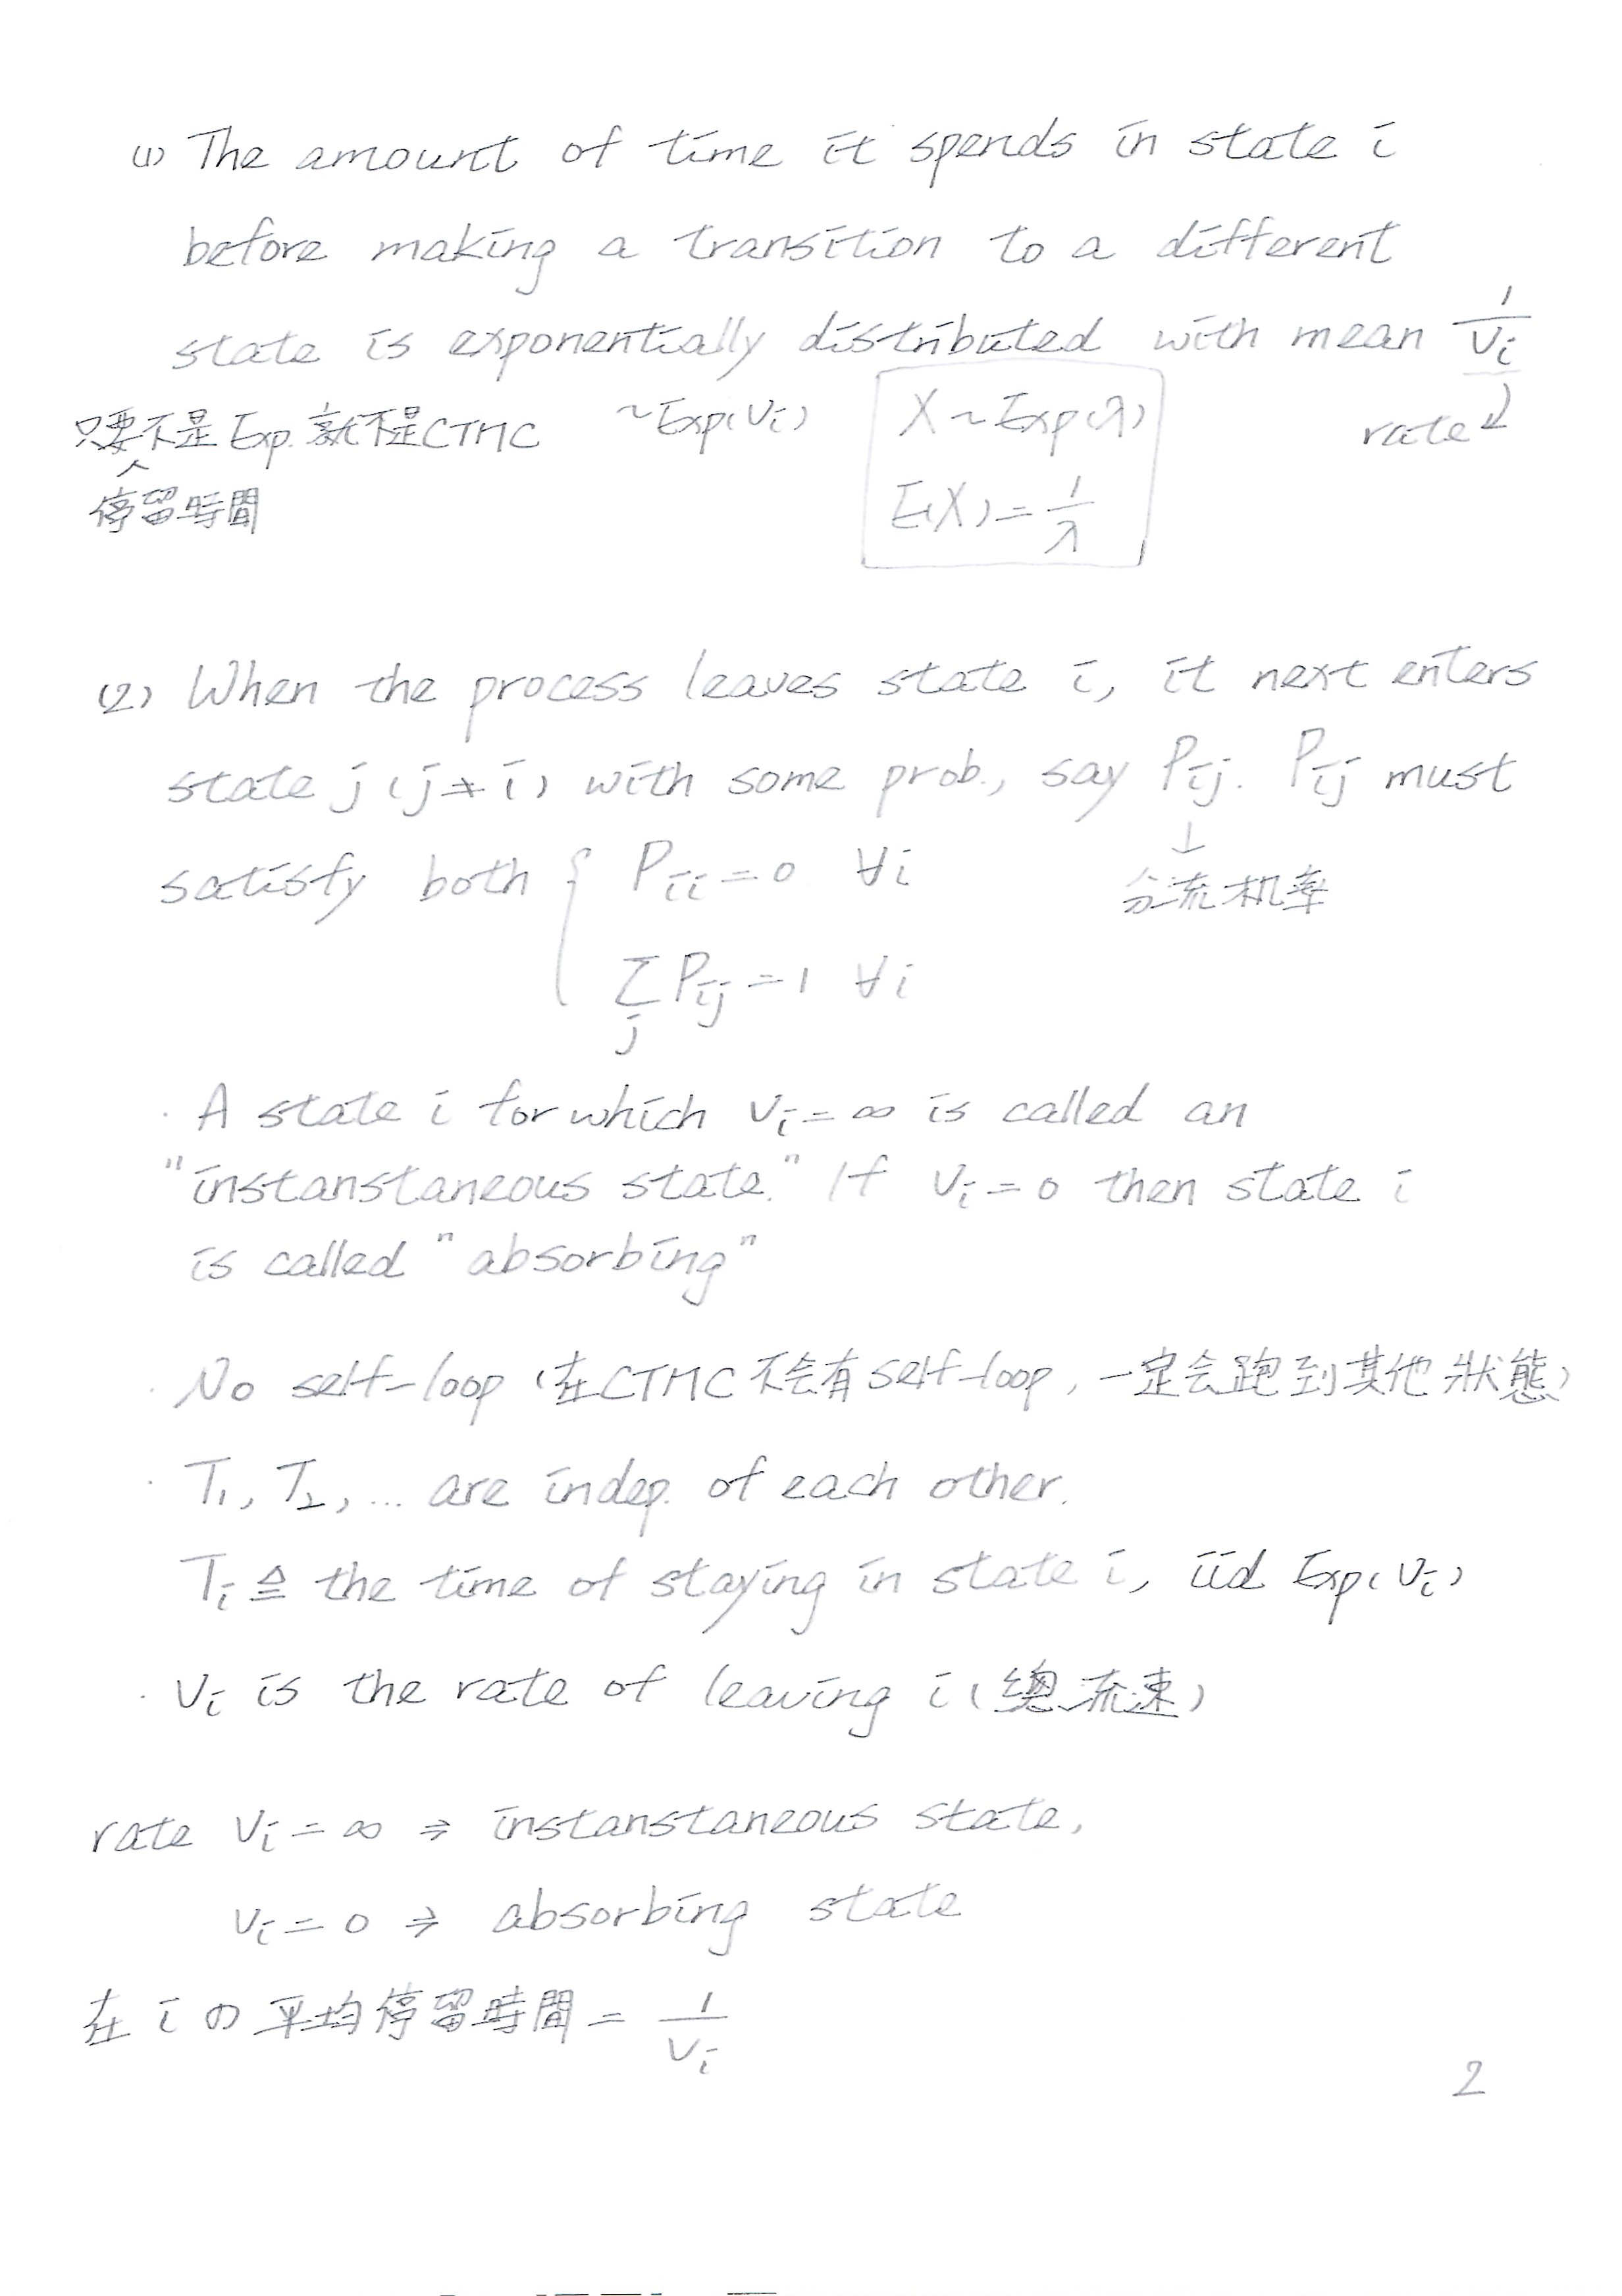 (1) The amount of time it spends in state i
before making a transition to a different
state is exponentially distributed with mean 1/vi
只要不是Exp.就不是CTMC ~Exp(vi) X~Exp(λ) rate
停留時間 E(X)=1/λ
(2) When the process leaves state i, it next enters
state j (j≠i) with some prob., say Pij. Pij must
satisfy both { Pii=0 ∀i ↓ 分流机率
∑j Pij=1 ∀i
· A state i for which vi=∞ is called an
"instanstaneous state." If vi=0 then state i
is called "absorbing"
· No self-loop (在CTMC不会有self-loop, 一定会跑到其他狀態)
· T1, T2, ... are indep. of each other.
Ti ≜ the time of staying in state i, iid Exp(vi)
· vi is the rate of leaving i (總流速)
rate vi=∞ ⇒ instanstaneous state,
vi=0 ⇒ absorbing state
在 i の 平均停留時間 = 1/vi
2